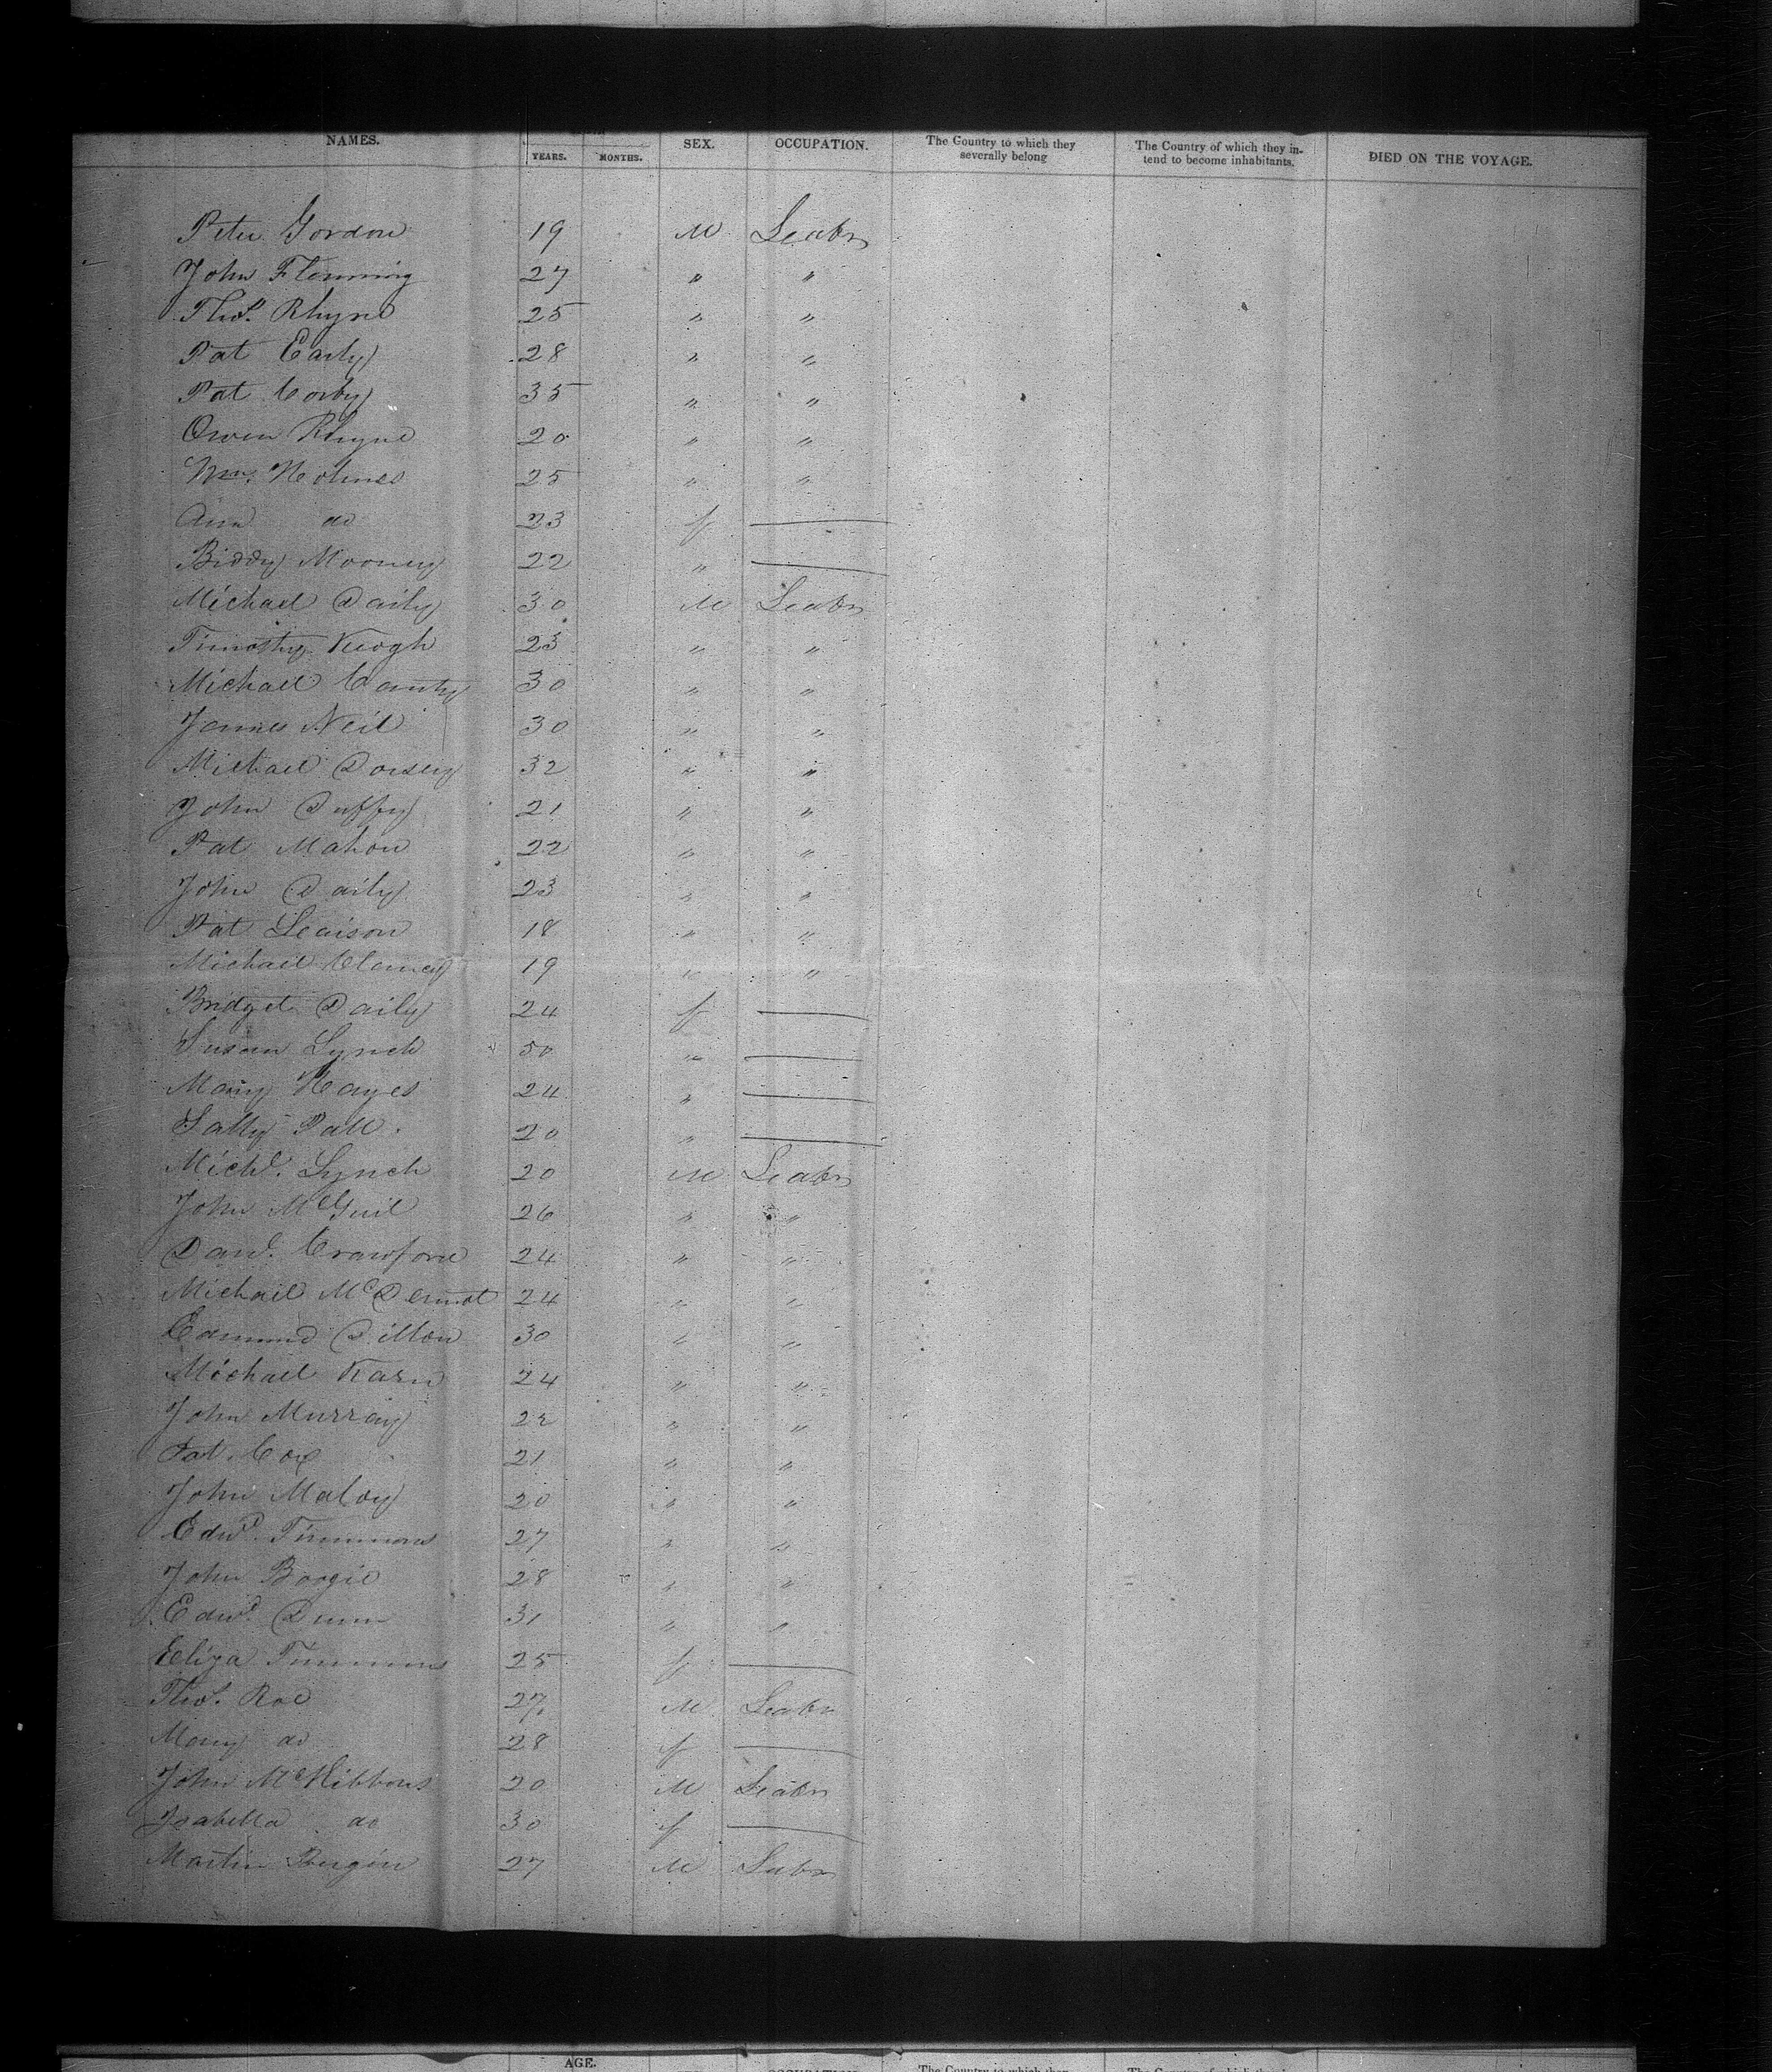 NAMES. YEARS. MONTHS. SEX. OCCUPATION. The Country to which they severally belong The Country of which they intend to become inhabitants. DIED ON THE VOYAGE.
Peter Gordon 19 M Leabr
John Flemming 27 " "
Thos. Rhyne 25 " "
Pat Early 28 " "
Pat Corby 35 " "
Owen Rhyne 20 " "
Wm. Holmes 25 " "
Ann do 23 f
Biddy Mooney 22 "
Michael Daily 30 M Leabr
Timothy Keogh 23 " "
Michael Canty 30 " "
James Neil 30 " "
Michael Dorsey 32 " "
John Duffy 21 " "
Pat Mahon 22 " "
John Daily 23 " "
Pat Leaison 18 " "
Michael Clancy 19 " "
Bridget Daily 24 f
Susan Lynch 50 "
Mary Hayes 24 "
Sally Pall 20 "
Michl. Lynch 20 M Leabr
John McGuil 26 " "
Danl. Crawford 24 " "
Michael McDermot 24 " "
Edmund Dillon 30 " "
Michael Karn 24 " "
John Murray 22 " "
Pat Cox 21 " "
John Maloy 20 " "
Edwd. Timmons 27 " "
John Boogie 28 " "
Edwd. Dunn 31 " "
Eliza Timmons 25 f
Thos. Roe 27 M Leabr
Mary do 28 f
John McKibbons 20 M Leabr
Isabella do 30 f
Martin Bergin 27 M Labr
AGE.